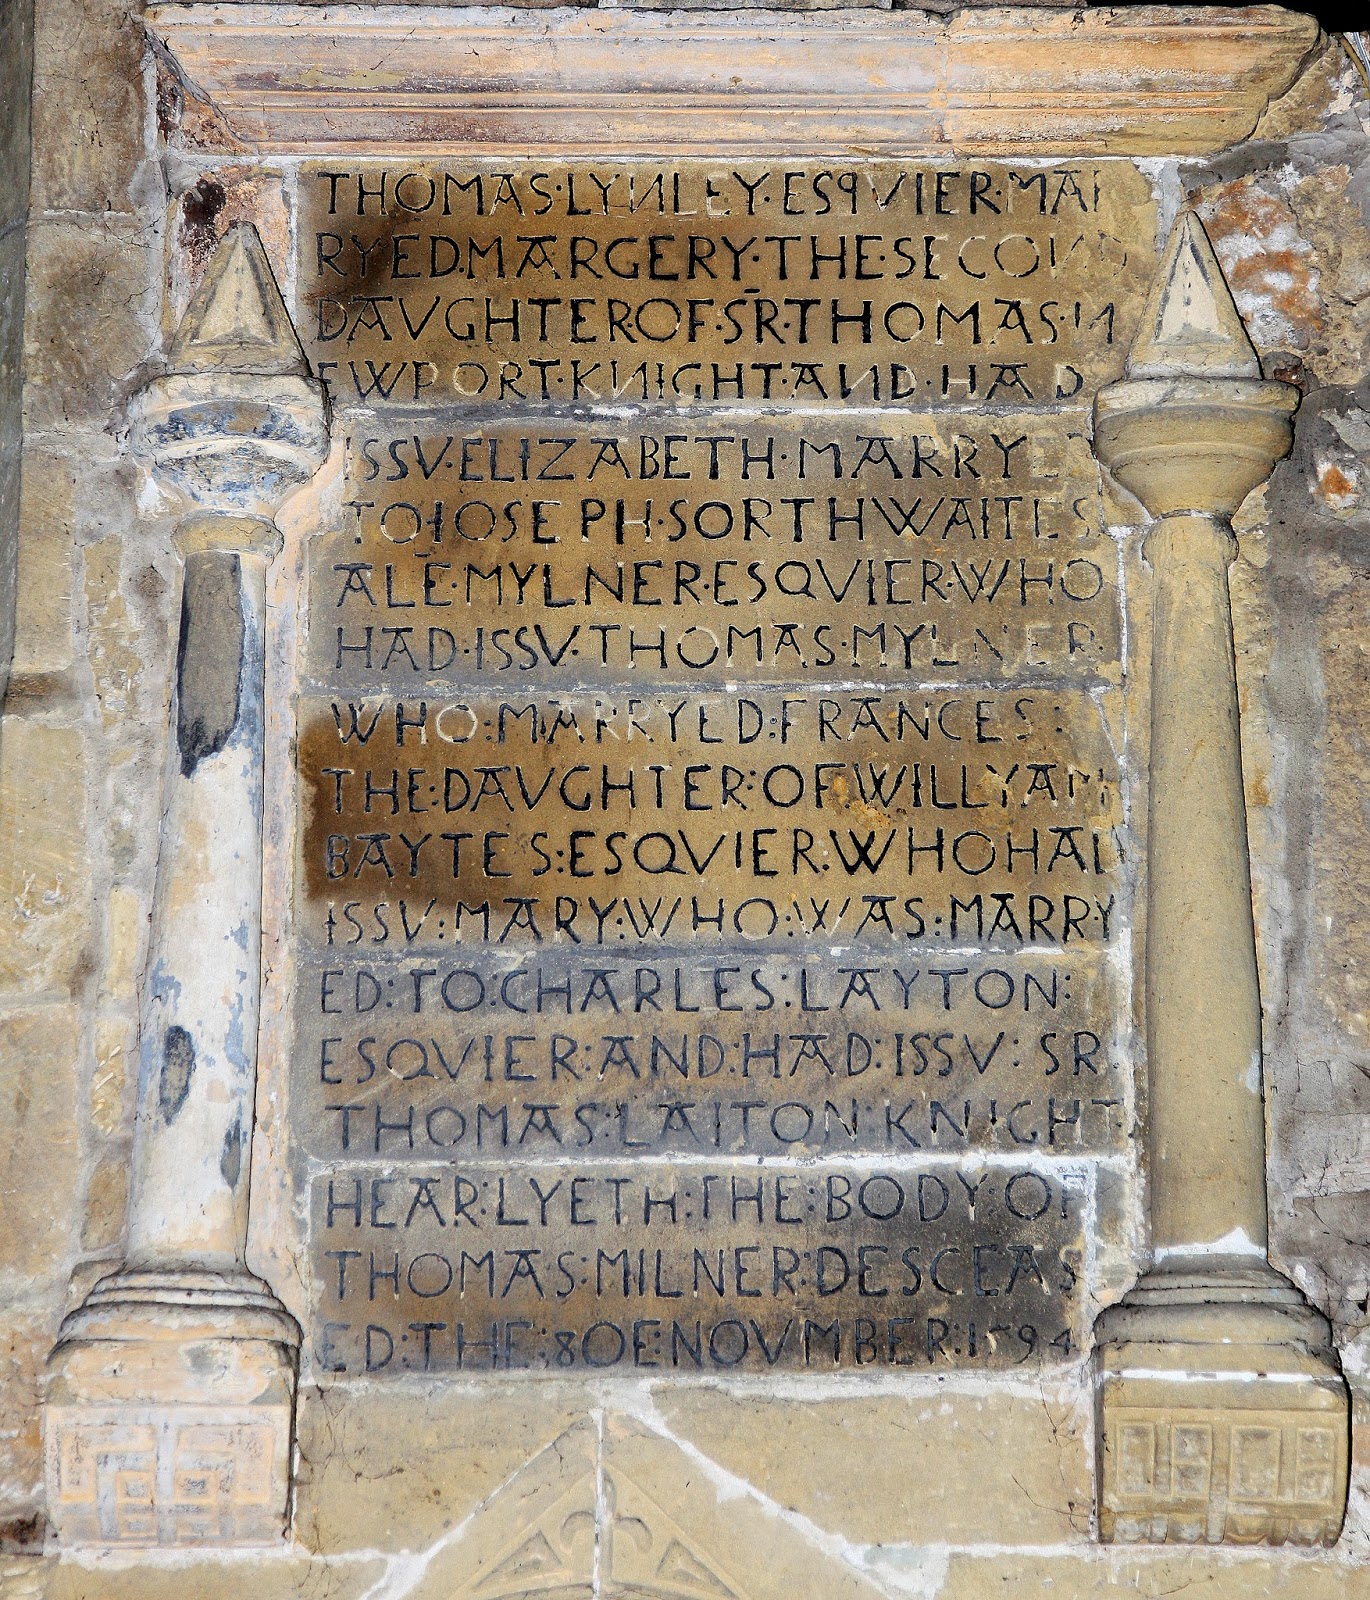 THOMAS·LYNLEY·ESQVIER·MAR
RYED·MARGERY·THE·SECOND
DAVGHTER·OF·SR·THOMAS·N
EWPORT·KNIGHT·AND·HAD
ISSV·ELIZABETH·MARRYED
TO·IOSEPH·SORTHWAIT ES
ALE·MYLNER·ESQVIER·WHO
HAD·ISSV·THOMAS·MYLNER·
WHO:MARRYED:FRANCES:
THE:DAVGHTER:OF WILLYAM
BAYTES:ESQVIER:WHO HAD
ISSV:MARY:WHO:WAS:MARRY
ED:TO:CHARLES:LAYTON:
ESQVIER:AND:HAD:ISSV:SR:
THOMAS:LAITON:KNIGHT
HEAR:LYETH:THE:BODY:OF
THOMAS:MILNER:DESCEAS
ED:THE:8OE:NOVMBER:1594